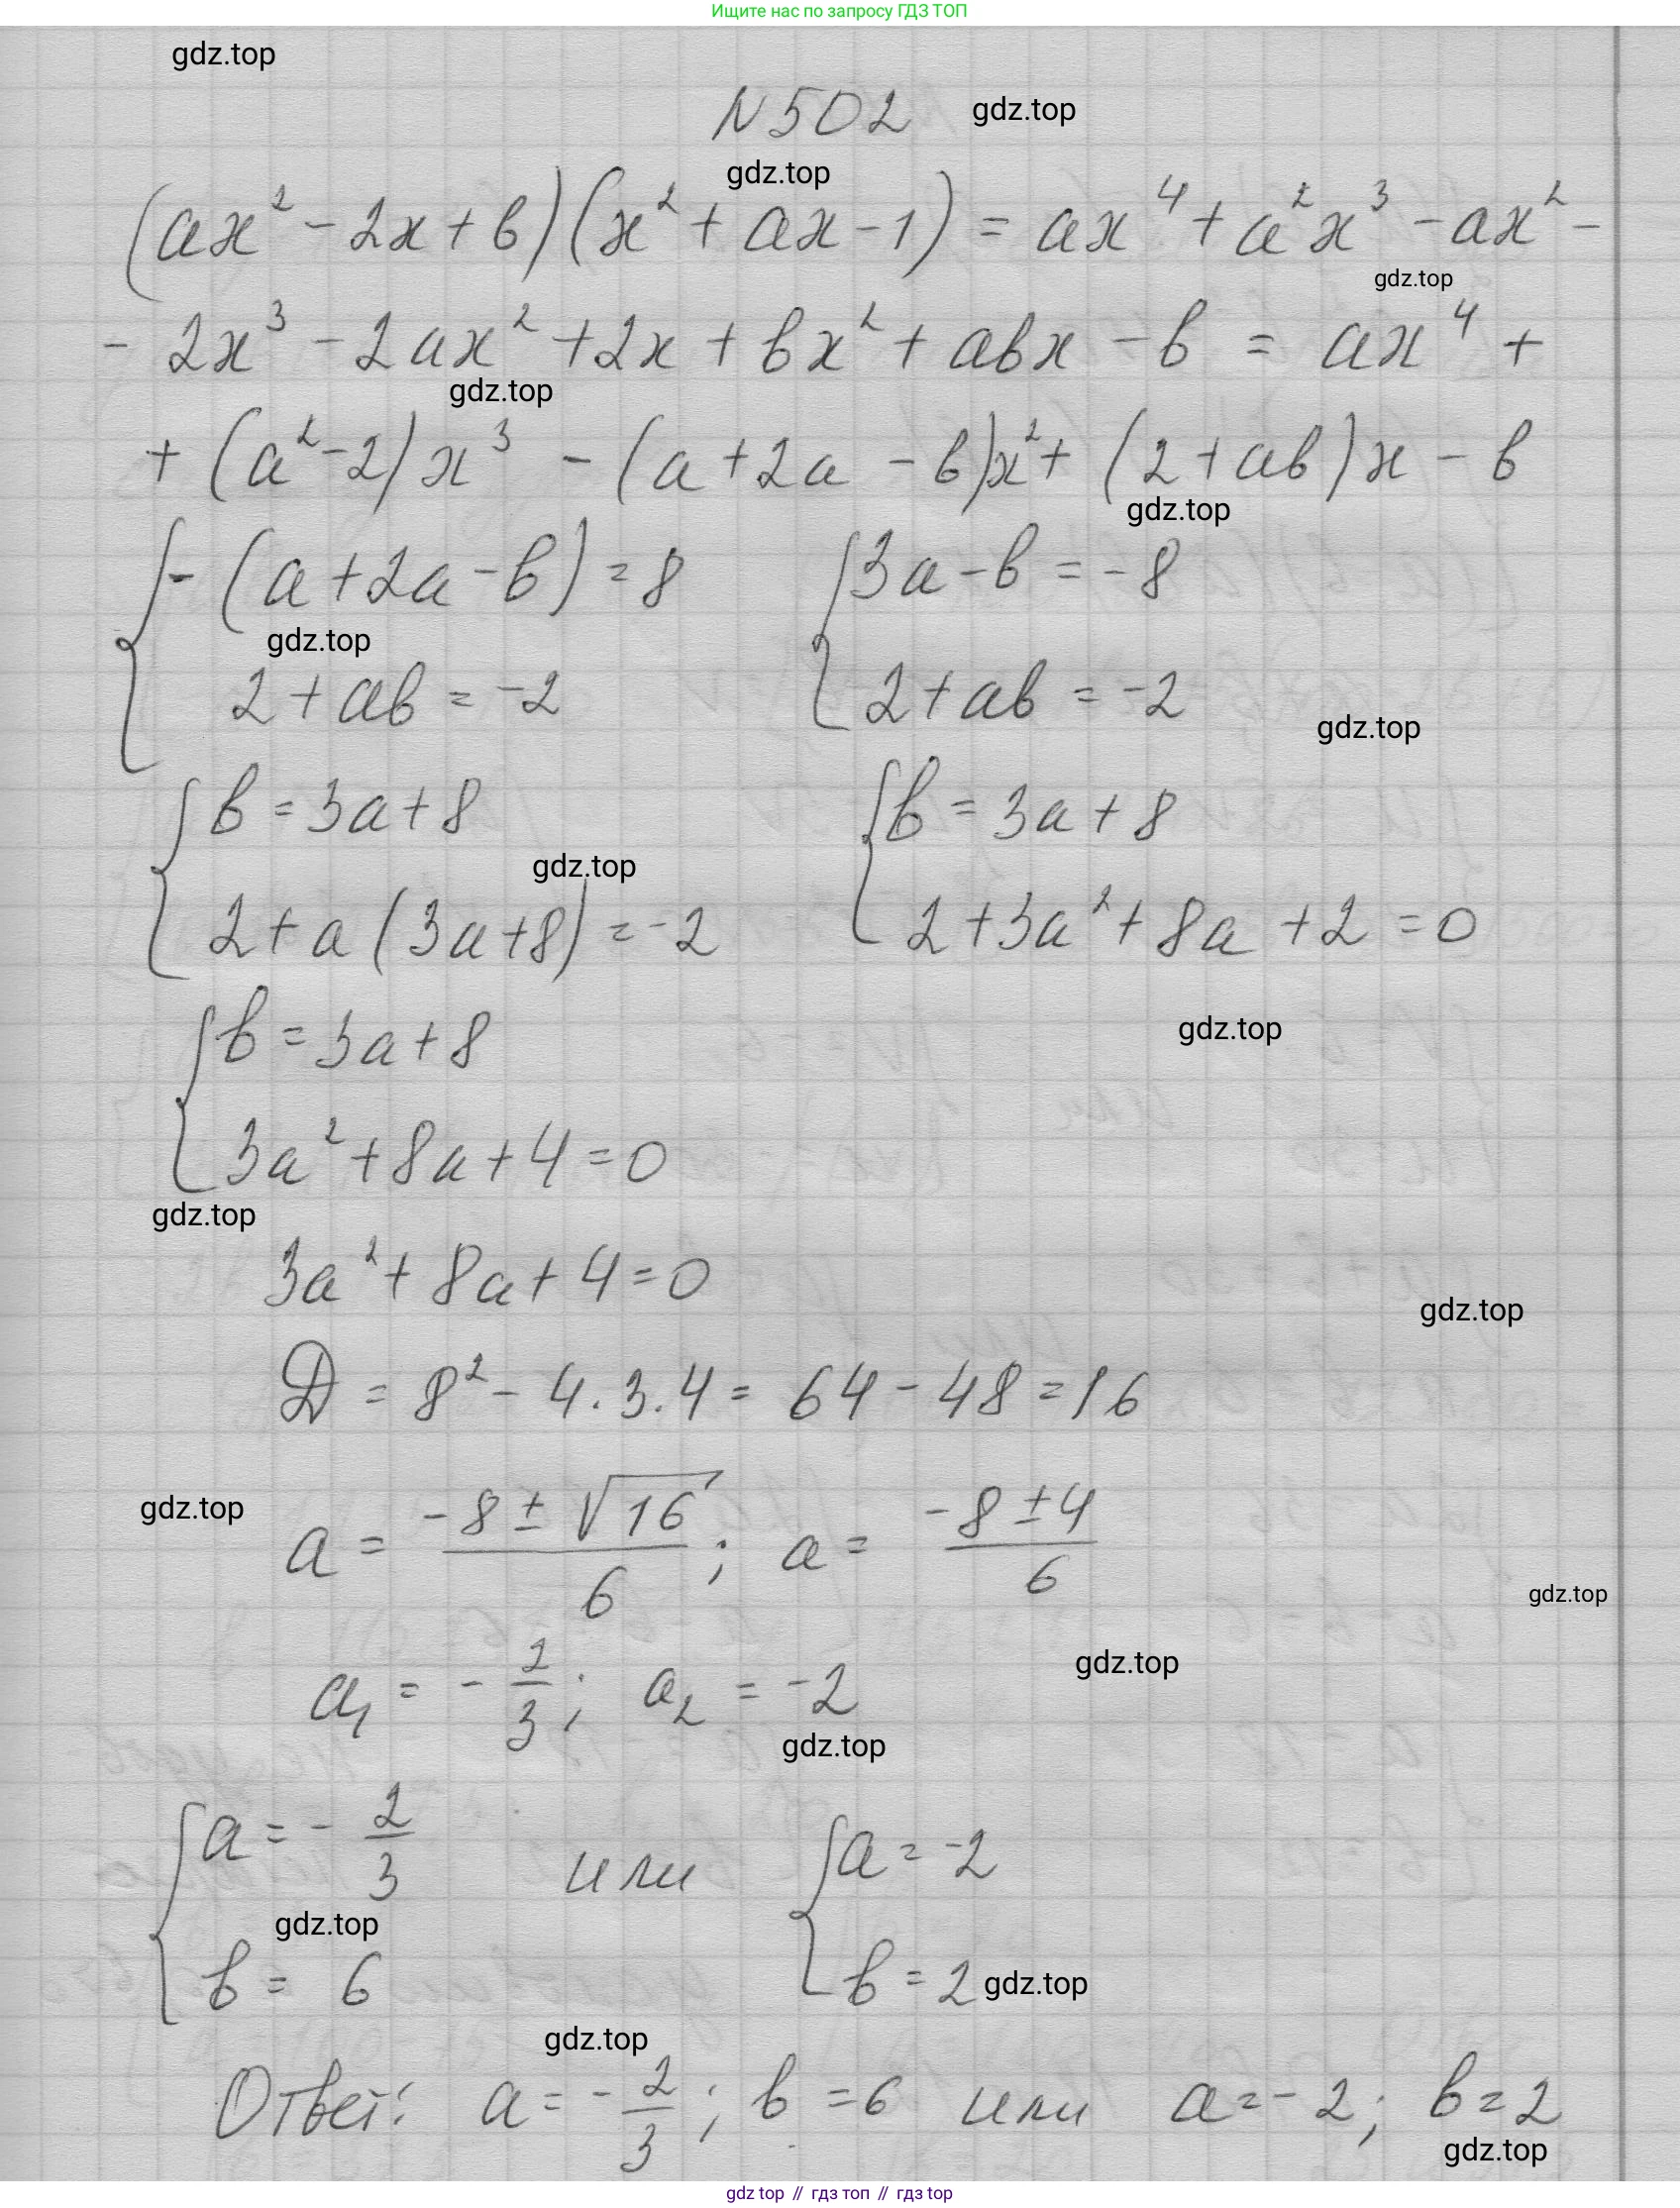 Ищите нас по запросу ГДЗ ТОП
gdz.top
N 502 gdz.top
gdz.top
(ax² - 2x + b)(x² + ax - 1) = ax⁴ + a²x³ - ax² -
gdz.top
- 2x³ - 2ax² + 2x + bx² + abx - b = ax⁴ +
gdz.top
+ (a² - 2)x³ - (a + 2a - b)x² + (2 + ab)x - b
gdz.top
{ -(a + 2a - b) = 8 { 3a - b = -8
gdz.top
2 + ab = -2 2 + ab = -2
gdz.top
{ b = 3a + 8 { b = 3a + 8
gdz.top
2 + a(3a + 8) = -2 2 + 3a² + 8a + 2 = 0
{ b = 3a + 8 gdz.top
3a² + 8a + 4 = 0
gdz.top
3a² + 8a + 4 = 0
gdz.top
D = 8² - 4 · 3 · 4 = 64 - 48 = 16
gdz.top
a = (-8 ± √16)/6 ; a = (-8 ± 4)/6
gdz.top
gdz.top
a₁ = -2/3 ; a₂ = -2
gdz.top
{ a = -2/3 или { a = -2
gdz.top
b = 6 b = 2 gdz.top
gdz.top
Ответ: a = -2/3 ; b = 6 или a = -2 ; b = 2
gdz.top
gdz top // гдз топ // гдз top